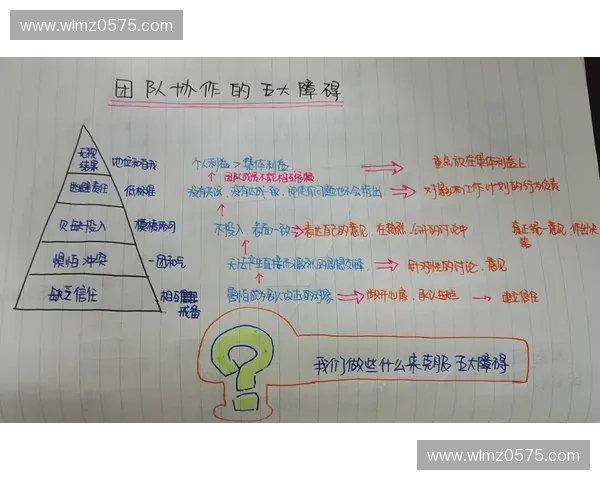 www.wlmz0575.com
团队协作的五大障碍
无视结果 地位和自我 个人利益>集体利益 重点放在集体利益上
团队成员不能相互
逃避责任 低标准 没有共识,没有达成一致,即使有问题也不会指出 对影响工作计划的行为负责
欠缺投入 模棱两可 不投入,表面一致 表达自己的意见,在激烈、公开的讨论中 真正统一意见,作出决策
惧怕冲突 一团和气 无法产生直接而激烈的思想交锋 针对性的讨论、意见
缺乏信任 相互戒备 害怕成为别人攻击的对象 敞开心扉,承认 建立信任
我们做些什么来克服五大障碍
www.wlmz0575.com